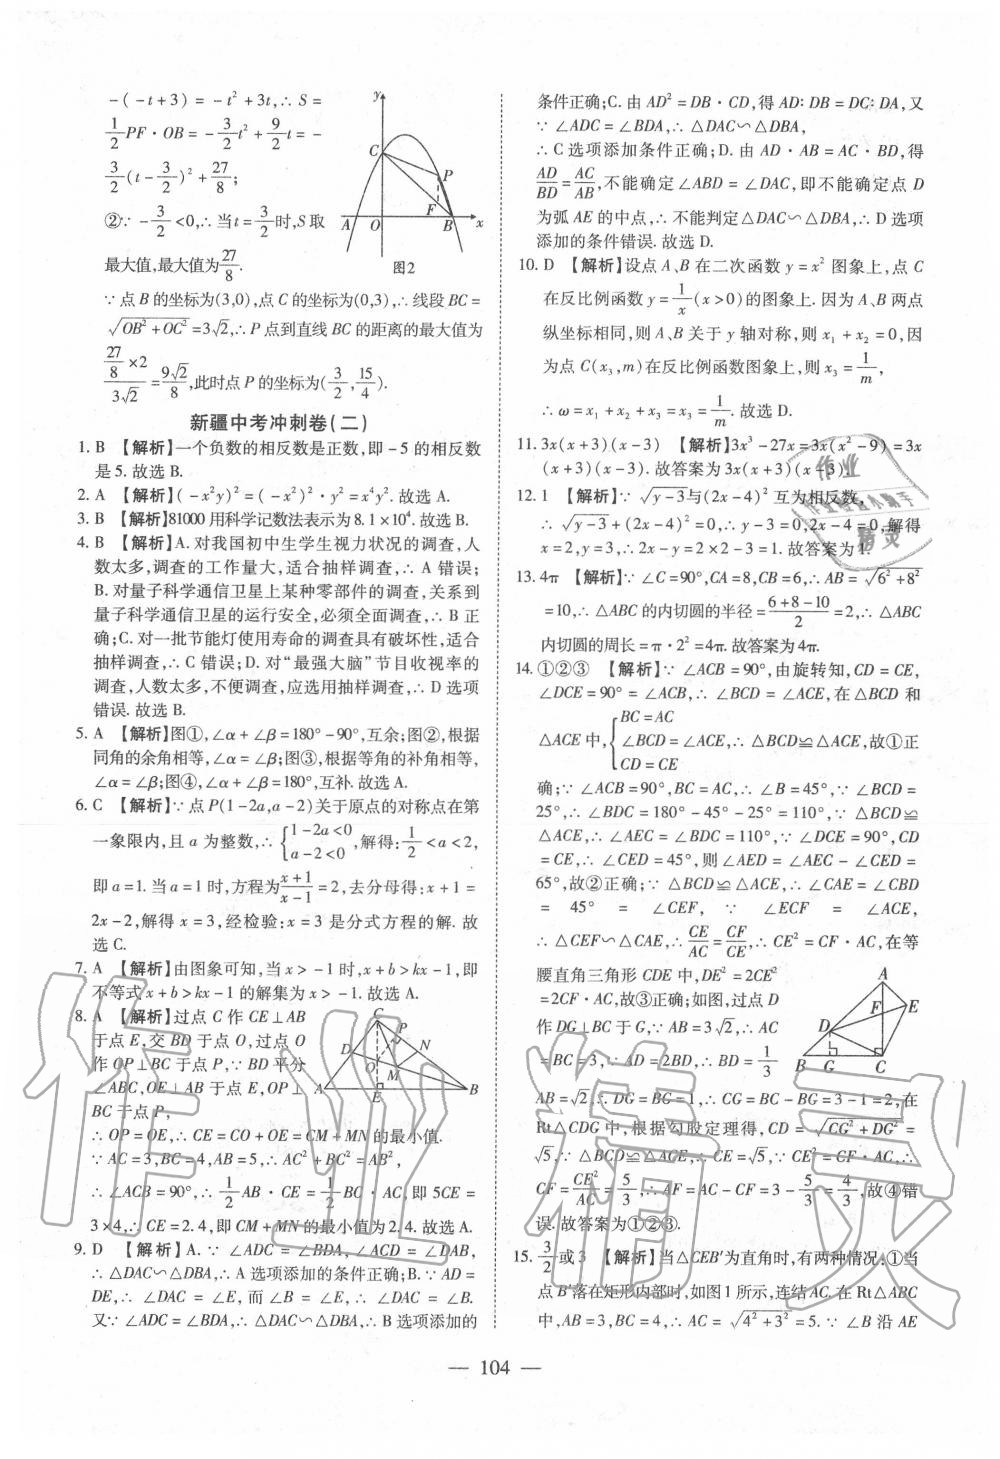 -(-t+3) = -t²+3t,∴ S =
1/2 PF·OB = -3/2 t²+9/2 t = -
3/2 (t-3/2)²+27/8;
②∵ -3/2<0,∴当t=3/2时,S取
最大值,最大值为27/8.
y
C
P
F
A
O
B
x
图2
∵点B的坐标为(3,0),点C的坐标为(0,3),∴线段BC=
√(OB²+OC²)=3√2,∴P点到直线BC的距离的最大值为
(27/8×2)/(3√2)=9√2/8,此时点P的坐标为(3/2,15/4).
新疆中考冲刺卷(二)
1. B 【解析】一个负数的相反数是正数,即-5的相反数
是5.故选B.
2. A 【解析】(-x²y)²=(-x²)²·y²=x⁴y².故选A.
3. B 【解析】81000用科学记数法表示为8.1×10⁴.故选B.
4. B 【解析】A.对我国初中生学生视力状况的调查,人
数太多,调查的工作量大,适合抽样调查,∴A错误;
B.对量子科学通信卫星上某种零部件的调查,关系到
量子科学通信卫星的运行安全,必须全面调查,∴B正
确;C.对一批节能灯使用寿命的调查具有破坏性,适合
抽样调查,∴C错误;D.对“最强大脑”节目收视率的
调查,人数太多,不便调查,应选用抽样调查,∴D选项
错误.故选B.
5. A 【解析】图①,∠α+∠β=180°-90°,互余;图②,根据
同角的余角相等,∠α=∠β;图③,根据等角的补角相等,
∠α=∠β;图④,∠α+∠β=180°,互补.故选A.
6. C 【解析】∵点P(1-2a,a-2)关于原点的对称点在第
一象限内,且a为整数,∴{1-2a<0 a-2<0,解得:1/2<a<2,
即a=1.当a=1时,方程为(x+1)/(x-1)=2,去分母得:x+1=
2x-2,解得x=3,经检验:x=3是分式方程的解.故
选C.
7. A 【解析】由图象可知,当x>-1时,x+b>kx-1,即
不等式x+b>kx-1的解集为x>-1.故选A.
8. A 【解析】过点C作CE⊥AB
于点E,交BD于点O,过点O
作OP⊥BC于点P,∵BD平分
∠ABC,OE⊥AB于点E,OP⊥
BC于点P,
C
P
D
N
O
M
A
E
B
∴OP=OE,∴CE=CO+OE=CM+MN的最小值.
∵AC=3,BC=4,AB=5,∴AC²+BC²=AB²,
∴∠ACB=90°,∴1/2 AB·CE=1/2 BC·AC,即5CE=
3×4,∴CE=2.4,即CM+MN的最小值为2.4.故选A.
9. D 【解析】A.∵∠ADC=∠BDA,∠ACD=∠DAB,
∴△DAC∽△DBA,∴A选项添加的条件正确;B.∵AD=
DE,∴∠DAC=∠E,而∠B=∠E,∴∠DAC=∠B.
又∵∠ADC=∠BDA,∴△DAC∽△DBA,∴B选项添加的
条件正确;C.由AD²=DB·CD,得AD:DB=DC:DA,又
∵∠ADC=∠BDA,∴△DAC∽△DBA,
∴C选项添加条件正确;D.由AD·AB=AC·BD,得
AD/BD=AC/AB,不能确定∠ABD=∠DAC,即不能确定点D
为弧AE的中点,∴不能判定△DAC∽△DBA,∴D选项
添加的条件错误.故选D.
10. D 【解析】设点A、B在二次函数y=x²图象上,点C
在反比例函数y=1/x(x>0)的图象上.因为A、B两点
纵坐标相同,则A、B关于y轴对称,则x₁+x₂=0,因
为点C(x₃,m)在反比例函数图象上,则x₃=1/m,
∴ω=x₁+x₂+x₃=1/m.故选D.
11. 3x(x+3)(x-3) 【解析】3x³-27x=3x(x²-9)=3x
(x+3)(x-3).故答案为3x(x+3)(x-3).
12. 1 【解析】∵√(y-3)与(2x-4)²互为相反数,
∴√(y-3)+(2x-4)²=0,∴y-3=0,2x-4=0,解得
x=2,y=3,∴2x-y=2×2-3=1.故答案为1.
13. 4π 【解析】∵∠C=90°,CA=8,CB=6,∴AB=√(6²+8²)
=10,∴△ABC的内切圆的半径=(6+8-10)/2=2,∴△ABC
内切圆的周长=π·2²=4π.故答案为4π.
14. ①②③ 【解析】∵∠ACB=90°,由旋转知,CD=CE,
∠DCE=90°=∠ACB,∴∠BCD=∠ACE,在△BCD和
△ACE中,{BC=AC ∠BCD=∠ACE CD=CE,∴△BCD≌△ACE,故①正
确;∵∠ACB=90°,BC=AC,∴∠B=45°,∵∠BCD=
25°,∴∠BDC=180°-45°-25°=110°,∵△BCD≌
△ACE,∴∠AEC=∠BDC=110°,∵∠DCE=90°,CD
=CE,∴∠CED=45°,则∠AED=∠AEC-∠CED=
65°,故②正确;∵△BCD≌△ACE,∴∠CAE=∠CBD
=45°=∠CEF,∵∠ECF=∠ACE,
∴△CEF∽△CAE,∴CE/AC=CF/CE,∴CE²=CF·AC,在等
腰直角三角形CDE中,DE²=2CE²
=2CF·AC,故③正确;如图,过点D
作DG⊥BC于G,∵AB=3√2,∴AC
=BC=3,∵AD=2BD,∴BD=1/3
A
F
E
D
B
G
C
AB=√2,∴DG=BG=1,∴CG=BC-BG=3-1=2,在
Rt△CDG中,根据勾股定理得,CD=√(CG²+DG²)=
√5,∵△BCD≌△ACE,∴CE=√5,∵CE²=CF·AC,∴
CF=CE²/AC=5/3,∴AF=AC-CF=3-5/3=4/3,故④错
误.故答案为①②③.
15. 3/2或3 【解析】当△CEB′为直角时,有两种情况:①当
点B′落在矩形内部时,如图1所示,连结AC.在Rt△ABC
中,AB=3,BC=4,∴AC=√(4²+3²)=5.∵∠B沿AE
— 104 —
作业
精灵
作业精灵